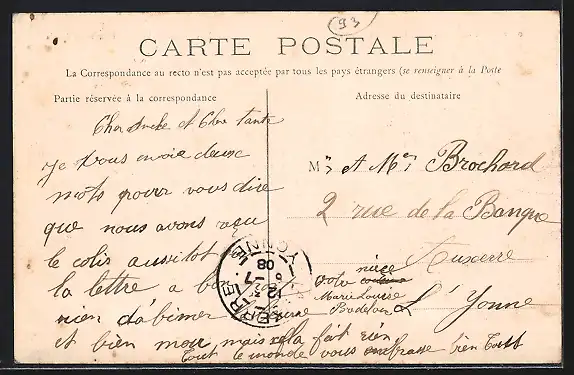 93
CARTE POSTALE
La Correspondance au recto n'est pas acceptée par tous les pays étrangers (se renseigner à la Poste
Partie réservée à la correspondance
Adresse du destinataire
Cher oncle et Cher tante
Je vous envoie deuse
mots pour vous dire
que nous avons reçu
le colis aussitot
la lettre a
rien d'abimer
et bien mou mais cela fait rien
Tout le monde vous embrasse bien Tous
votre nièce
Marie Louise
M et Me Brochard
2 rue de la Banque
Auxerre
L'Yonne
YONNE
12
-7
08